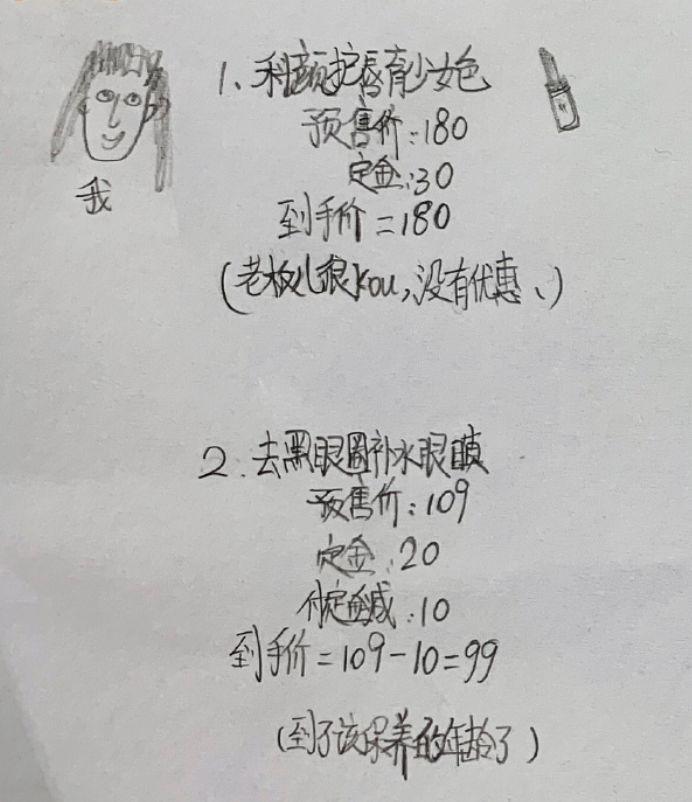 1、利颜护唇膏少女色
预售价:180
定金:30
到手价=180
(老板儿狠kou,没有优惠、)
我
2.去黑眼圈补水眼膜
预售价:109
定金:20
付定金减:10
到手价=109-10=99
(到了该保养的年龄了)